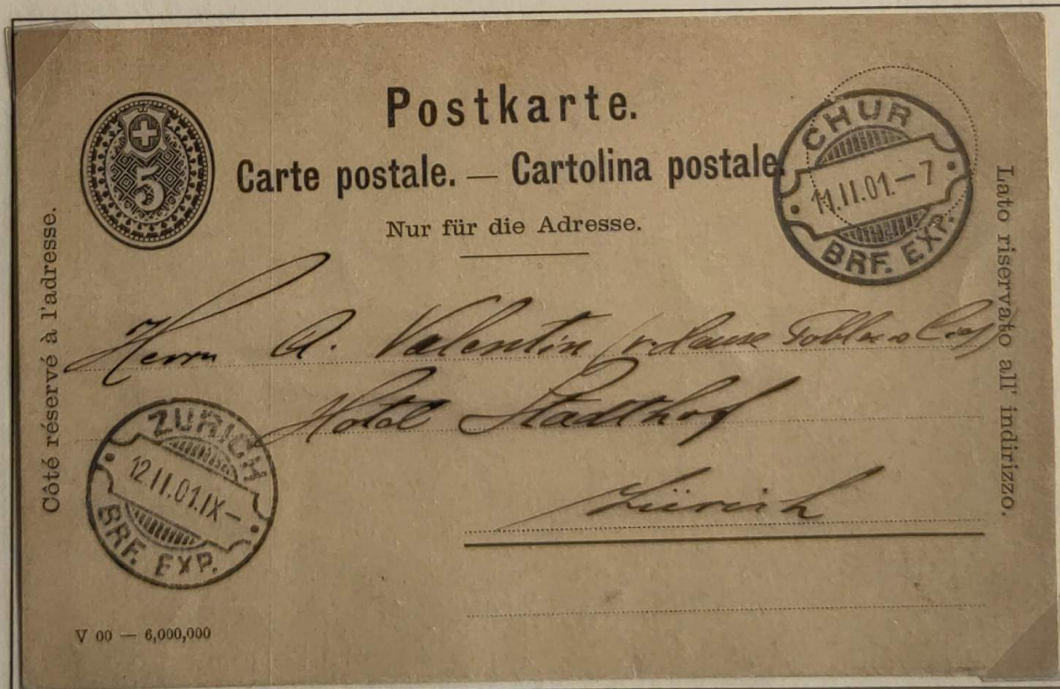 Postkarte.
5
Carte postale. — Cartolina postale.
Nur für die Adresse.
CHUR
11.II.01.–7
BRF. EXP.
Côté réservé à l'adresse.
Lato riservato all' indirizzo.
Herrn A. Valentin
Hotel Stadthof
Zürich
ZÜRICH
12.II.01.IX–
BRF. EXP.
V 00 — 6,000,000